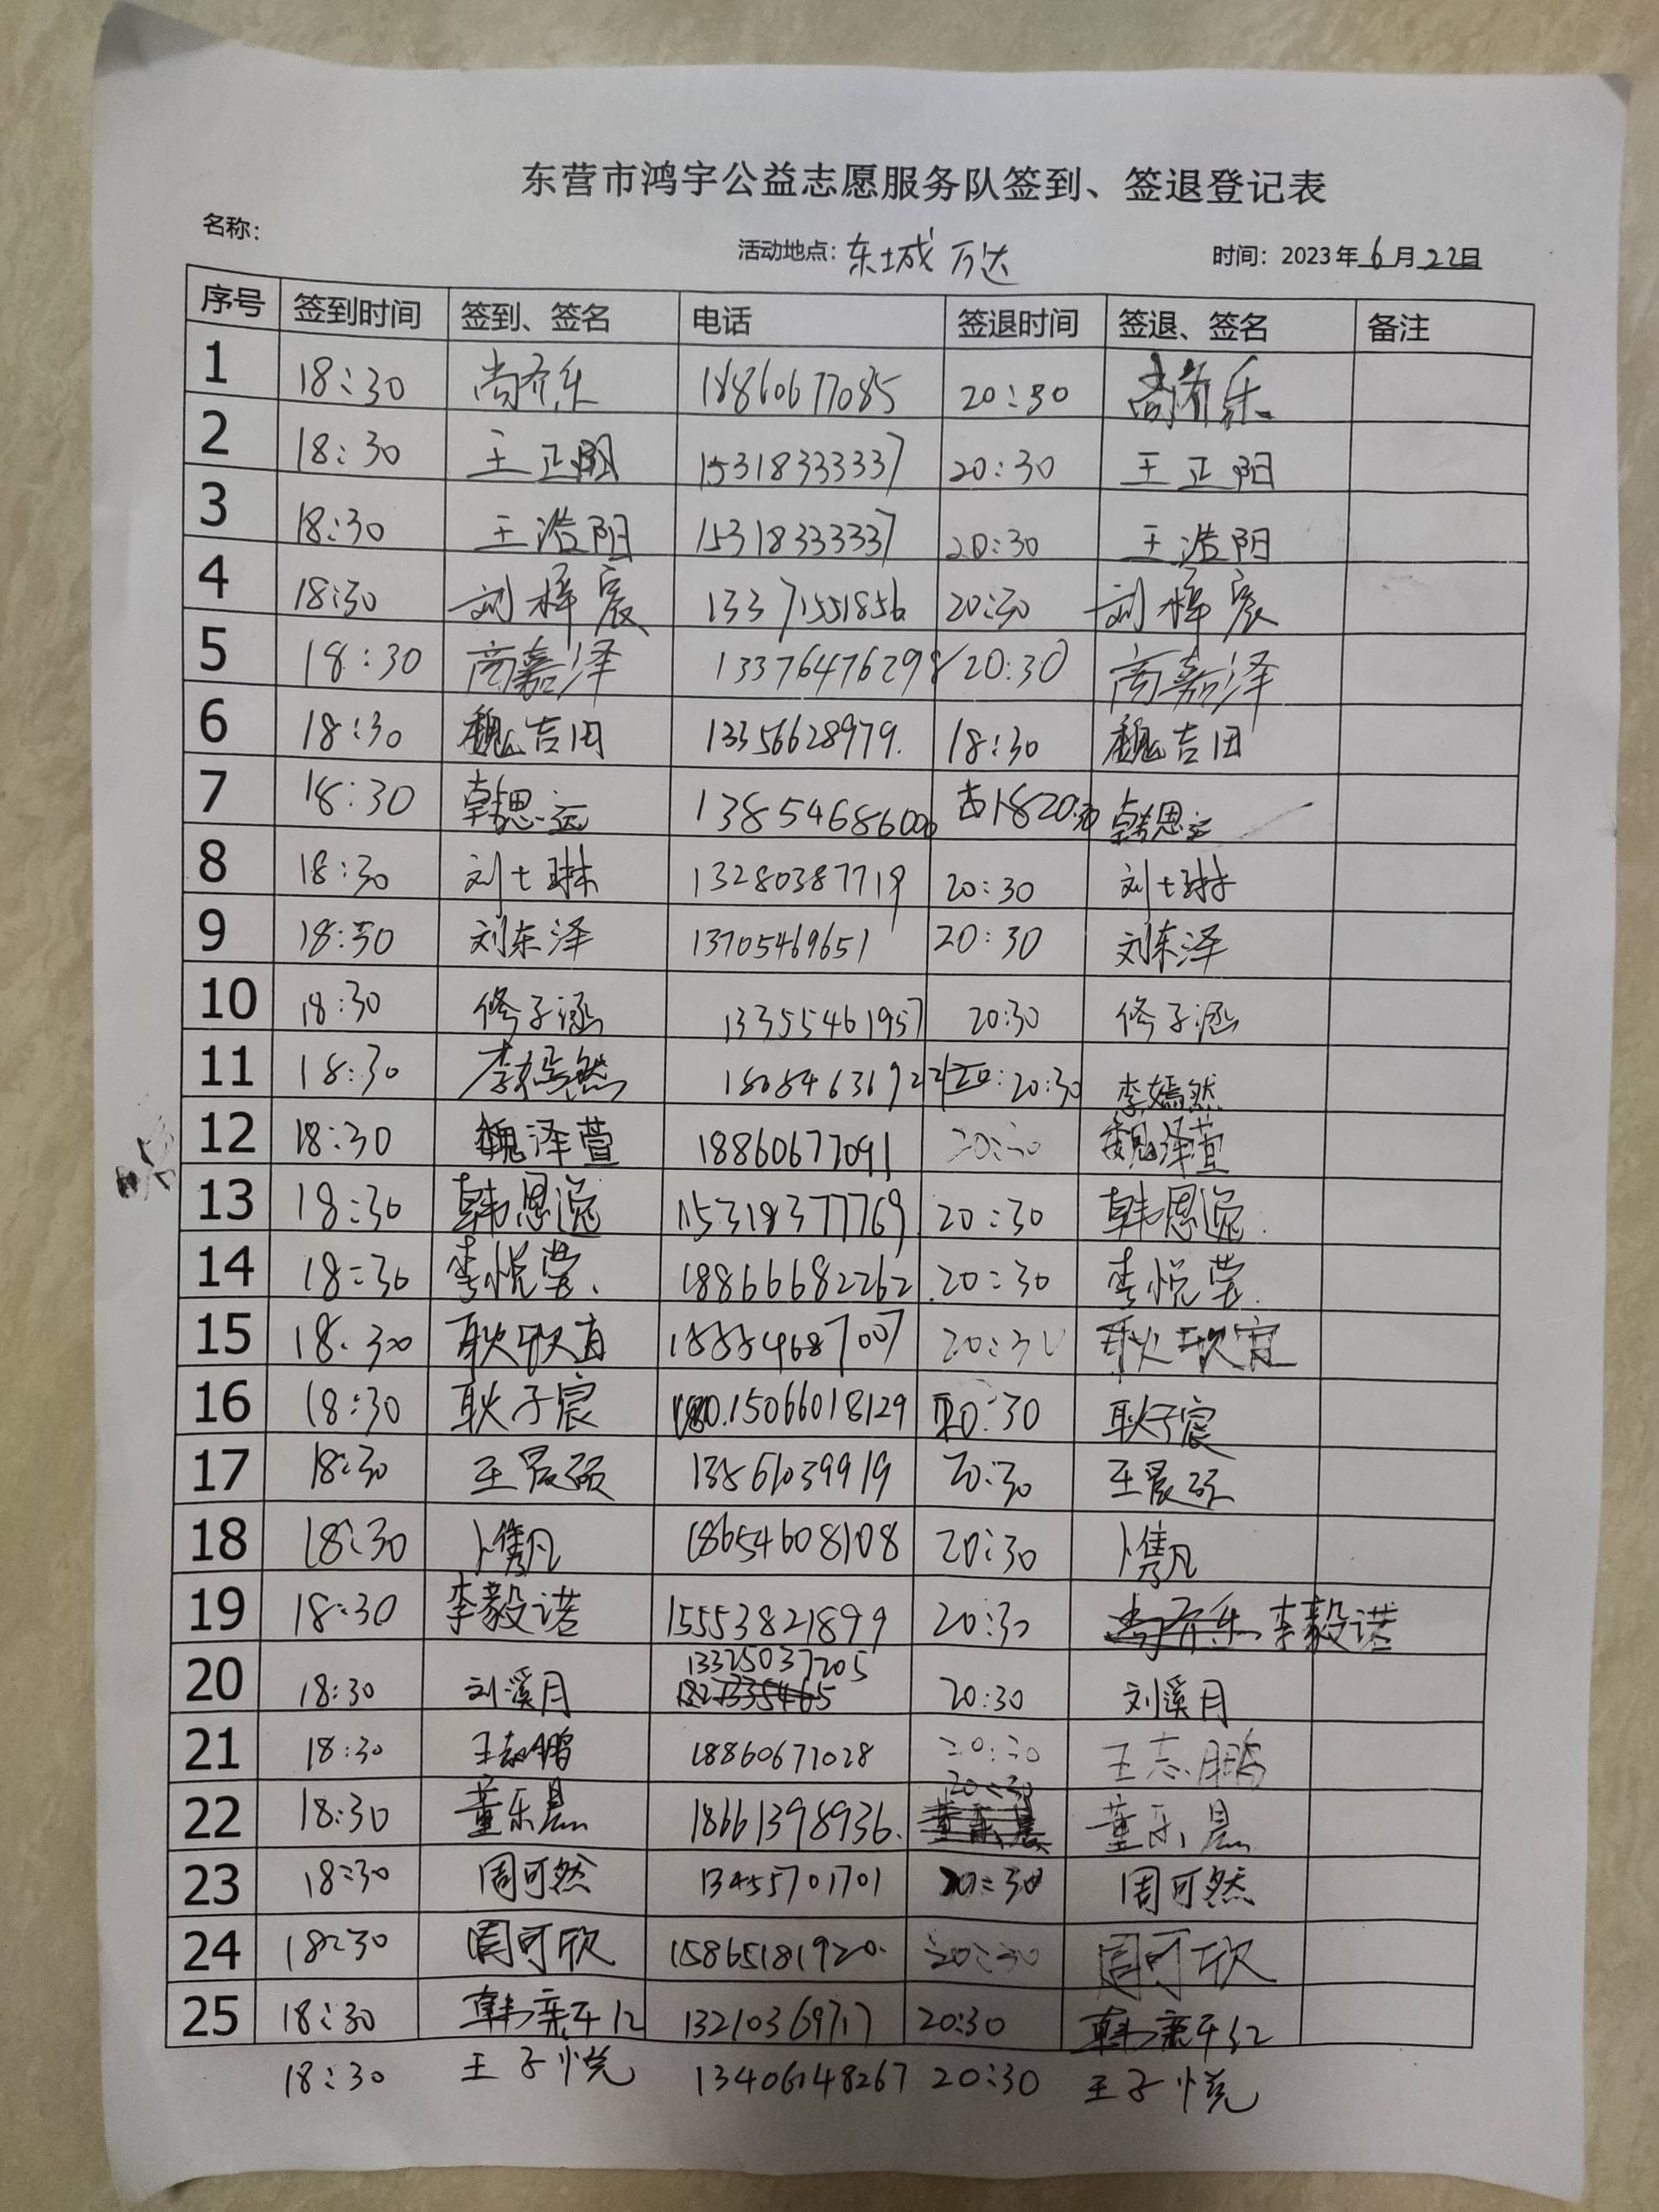 东营市鸿宇公益志愿服务队签到、签退登记表
名称：
活动地点：东城万达 时间：2023年6月22日
序号 签到时间 签到、签名 电话 签退时间 签退、签名 备注
1 18:30 尚乔乐 18860677085 20:30 尚乔乐
2 18:30 王正阳 15318333337 20:30 王正阳
3 18:30 王浩阳 15318333337 20:30 王浩阳
4 18:30 刘梓宸 13371551856 20:30 刘梓宸
5 18:30 商嘉泽 13376476298 20:30 商嘉泽
6 18:30 魏吉田 13356628979. 18:30 魏吉田
7 18:30 韩思运 13854686000 20:30 韩思运
8 18:30 刘七琳 13280387719 20:30 刘七琳
9 18:30 刘东泽 13705469651 20:30 刘东泽
10 18:30 修子涵 13355461957 20:30 修子涵
11 18:30 李嫣然 20:30 李嫣然
12 18:30 魏泽萱 18860677091 20:30 魏泽萱
13 18:30 韩恩逸 15318377769 20:30 韩恩逸
14 18:30 李悦莹. 18866682262. 20:30 李悦莹.
15 18:30 耿欣宜 18554687007 20:30 耿欣宜
16 18:30 耿子宸 15066018129 20:30 耿子宸
17 18:30 王晨硕 13561039919 20:30 王晨硕
18 18:30 卜隽凡 18654608108 20:30 卜隽凡
19 18:30 李毅诺 15553821899 20:30 李毅诺
20 18:30 刘溪月 13325037205 20:30 刘溪月
21 18:30 王志鹏 18860677028 20:30 王志鹏
22 18:30 董乐晨 18661398936. 20:30 董乐晨
23 18:30 周可然 13455701701 20:30 周可然
24 18:30 周可欣 15865181920. 20:30 周可欣
25 18:30 13210369717 20:30
18:30 王子悦 13406148267 20:30 王子悦